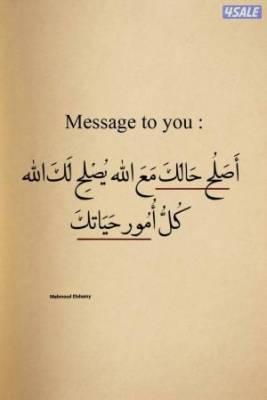 4SALE
Message to you :
أَصلُح حَالكَ مَعَ الله يُصْلِح لَكَ الله
كُلُّ أُمُور حَيَاتكَ
Mahmoud Elshamy